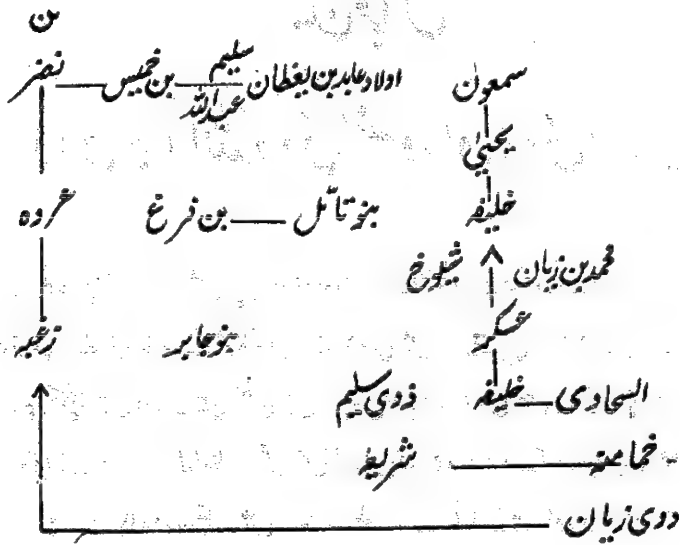 بن
سمعون اولاد عابد بن یغطان سلیم عبداللہ بن خمیس نضر
یحیٰی
خلیفہ بنو تائل بن فرغ عروہ
محمد بن زیان شیلوخ
عسکر بنو جابر زغبہ
السحاوی خلیفہ ذوی سلیم
خمامنہ شریعہ
دوی زیان